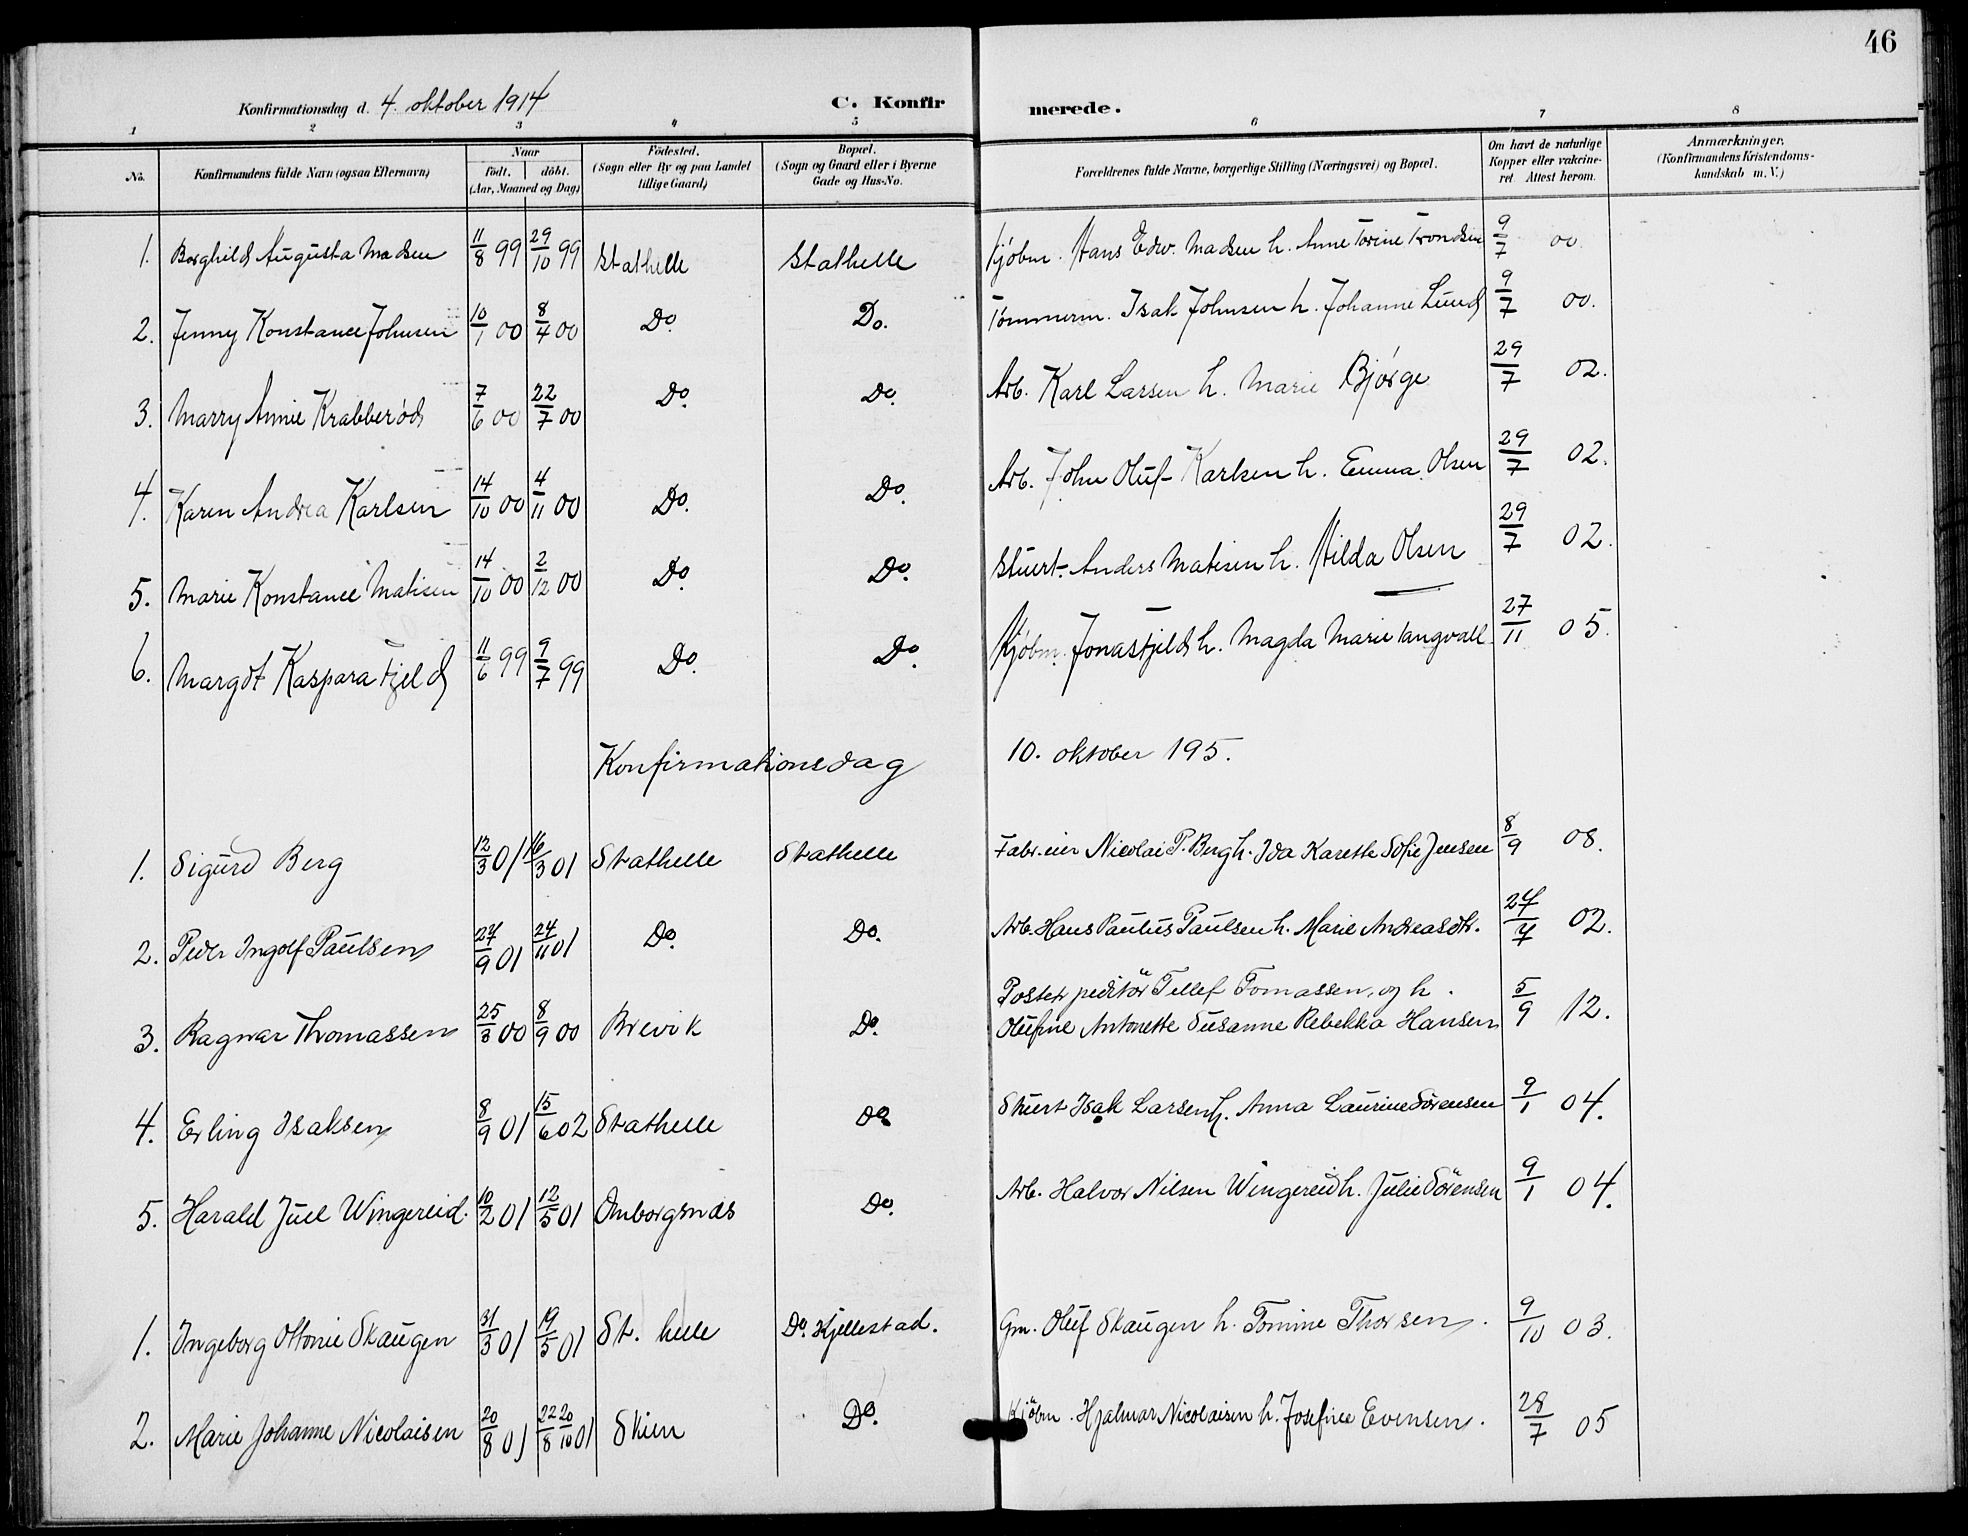 46
Konfirmationsdag d. 4. oktober 1914 C. Konfir merede.
1 2 3 4 5 6 7 8
No. Konfirmandens fulde Navn (ogsaa Efternavn) Naar født. døbt. (Aar, Maaned og Dag) Fødested. (Sogn eller By og paa Landet tillige Gaard) Bopæl. (Sogn og Gaard eller i Byerne Gade og Hus-No. Forældrenes fulde Navne, borgerlige Stilling (Næringsvei) og Bopæl. Om havt de naturlige Kopper eller vaccineret Attest herom. Anmærkninger. (Konfirmandens Kristendomskundskab m. V.)
1. Borghild Augusta Madsen 11/8 99 29/10 99 Stathelle Stathelle Kjøbm. Hans Edv. Madsen h. Anne Torine Trondsen 9/7 00
2. Jenny Konstance Johnsen 10/1 00 8/4 00 Do. Do. Tømmerm. Isak Johnsen h. Johanne Lund 9/7 00.
3. Marry Annie Krabberød 7/6 00 22/7 00 Do. Do. Arb. Karl Larsen h. Marie Bjørge 29/7 02.
4. Karen Andrea Karlsen 14/10 00 4/11 00 Do. Do. Arb. John Oluf Karlsen h. Emma Olsen 29/7 02.
5. Marie Konstance Matisen 14/10 00 2/12 00 Do. Do. Stuert. Anders Matisen h. Hilda Olsen 29/7 02.
6. Margot Kaspara Fjeld 11/6 99 9/7 99 Do. Do. Kjøbm. Jonas Fjeld h. Magda Marie Tangvall 27/11 05.
Konfirmationsdag 10. oktober 195.
1. Sigurd Berg 12/3 01 16/3 01 Stathelle Stathelle Fabr.eier Nicolai P. Berg h. Ida Karette Sofie Jensen 8/9 08.
2. Peder Ingolf Paulsen 27/9 01 24/11 01 Do. Do. Arb. Hans Paulus Paulsen h. Marie Andreasdtr. 27/7 02.
3. Ragnar Thomassen 25/3 00 8/9 00 Brevik Do. Postexpeditør Tellef Tomassen, og h.
Olufine Antonette Susanne Rebekka Hansen 5/9 12.
4. Erling Isaksen 8/9 01 15/6 02 Stathelle Do. Stuert Isak Larsen h. Anna Laurine Sørensen 9/1 04.
5. Harald Juel Wingereid. 10/2 01 12/5 01 Omborgsnæs Do. Arb. Halvor Nilsen Wingereid h. Julie Sørensen 9/1 04.
1. Ingeborg Ottonie Skaugen 31/3 01 19/5 01 St. helle Do. Kjellestad. Gm. Oluf Skaugen h. Tomine Thorsen. 9/10 03.
2. Marie Johanne Nicolaisen 20/8 01 22/8 20/10 01 Skien Do. Kjøbm. Hjalmar Nicolaisen h. Josefine Evensen. 28/7 05